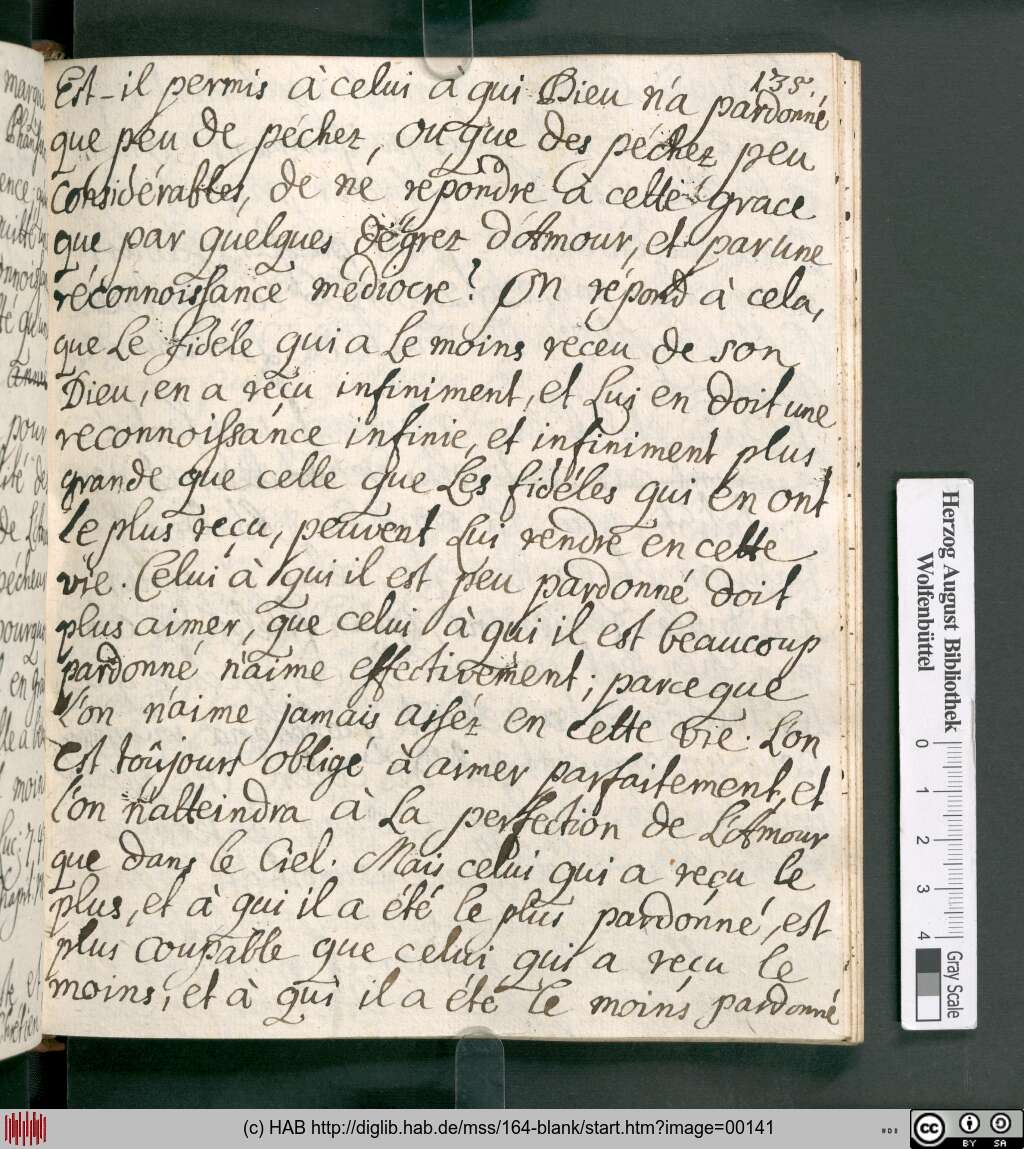 135.
Est-il permis à celui à qui Dieu n'a pardonné
que peu de péchez, ou que des péchez peu
considérables, de ne répondre à cette grace
que par quelques dégrez d'Amour, et par une
réconnoissance médiocre? On répond à cela,
que Le fidéle qui a Le moins receu de son
Dieu, en a reçu infiniment, et Luj en doit une
reconnoissance infinie, et infiniment plus
grande que celle que Les fidéles qui en ont
le plus reçu, peuvent Lui rendre en cette
vie. Celui à qui il est peu pardonné doit
plus aimer, que celui à qui il est beaucoup
pardonné n'aime effectivement; parce que
l'on n'aime jamais assez en cette vie. L'on
est toûjours obligé à aimer parfaitement, et
l'on n'atteindra à La perfection de L'Amour
que dans le Ciel. Mais celui qui a reçu le
plus, et à qui il a été le plus pardonné, est
plus coupable que celui qui a reçu le
moins, et à qui il a été le moins pardonné
pour
Herzog August Bibliothek
Wolfenbüttel
0 1 2 3 4
Gray Scale
(c) HAB http://diglib.hab.de/mss/164-blank/start.htm?image=00141
cc BY SA